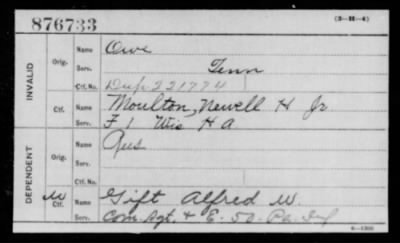 876733
(3-H-4)
INVALID
Orig.
Name
Owe
Serv.
Tenn
Ctf. No.
Dup 221774
Ctf.
Name
Moulton, Newell H Jr
Serv.
F 1 Wis H A
DEPENDENT
Orig.
Name
Aus
Serv.
Ctf. No.
M
Ctf.
Name
Gift Alfred W.
Serv.
Com. Sgt. + E. 50. Pa. Inf
6-1300